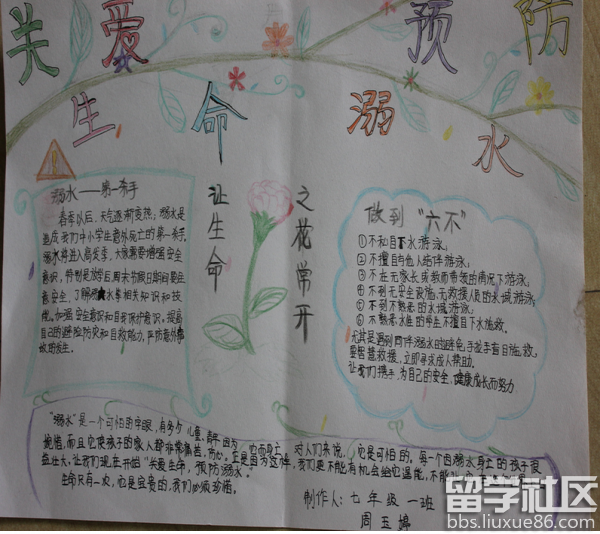 关爱 预防
生命 溺水
溺水——第一杀手
春季以后，天气逐渐变热，溺水是
造成我们中小学生意外死亡的第一杀手。
溺水将进入高发季，大家需要增强安全
意识，特别是放学后周末节假日期间要注
意安全，了解防水等相关知识和技
能。加强安全意识和自我保护意识，提高
自己的避险防灾和自救能力，严防意外事
故的发生。
让生命
之花常开
做到“六不”
①不私自下水游泳；
②不擅自与他人结伴游泳；
③不在无家长或教师带领的情况下游泳；
④不到无安全设施、无救援人员的水域游泳；
⑤不到不熟悉的水域游泳；
⑥不熟悉水性的学生不擅自下水施救。
尤其是遇到同伴溺水时避免手拉手盲目施救，
要智慧救援，立即寻求成人帮助。
让我们携手，为自己的安全、健康成长而努力
“溺水”是一个可怕的字眼，有多少儿童、青年因为它而身亡，对人们来说，它是可怕的，每一个因溺水身亡的孩子很
惋惜，而且它使孩子的家人都非常痛苦，伤心。正是因为这样，我们更不能有机会给它温度，不能让
益壮大，让我们现在开始“关爱生命，预防溺水”。
生命只有一次，它是宝贵的，我们必须珍惜。
制作人：七年级一班
周玉婷
留学社区
bbs.liuxue86.com